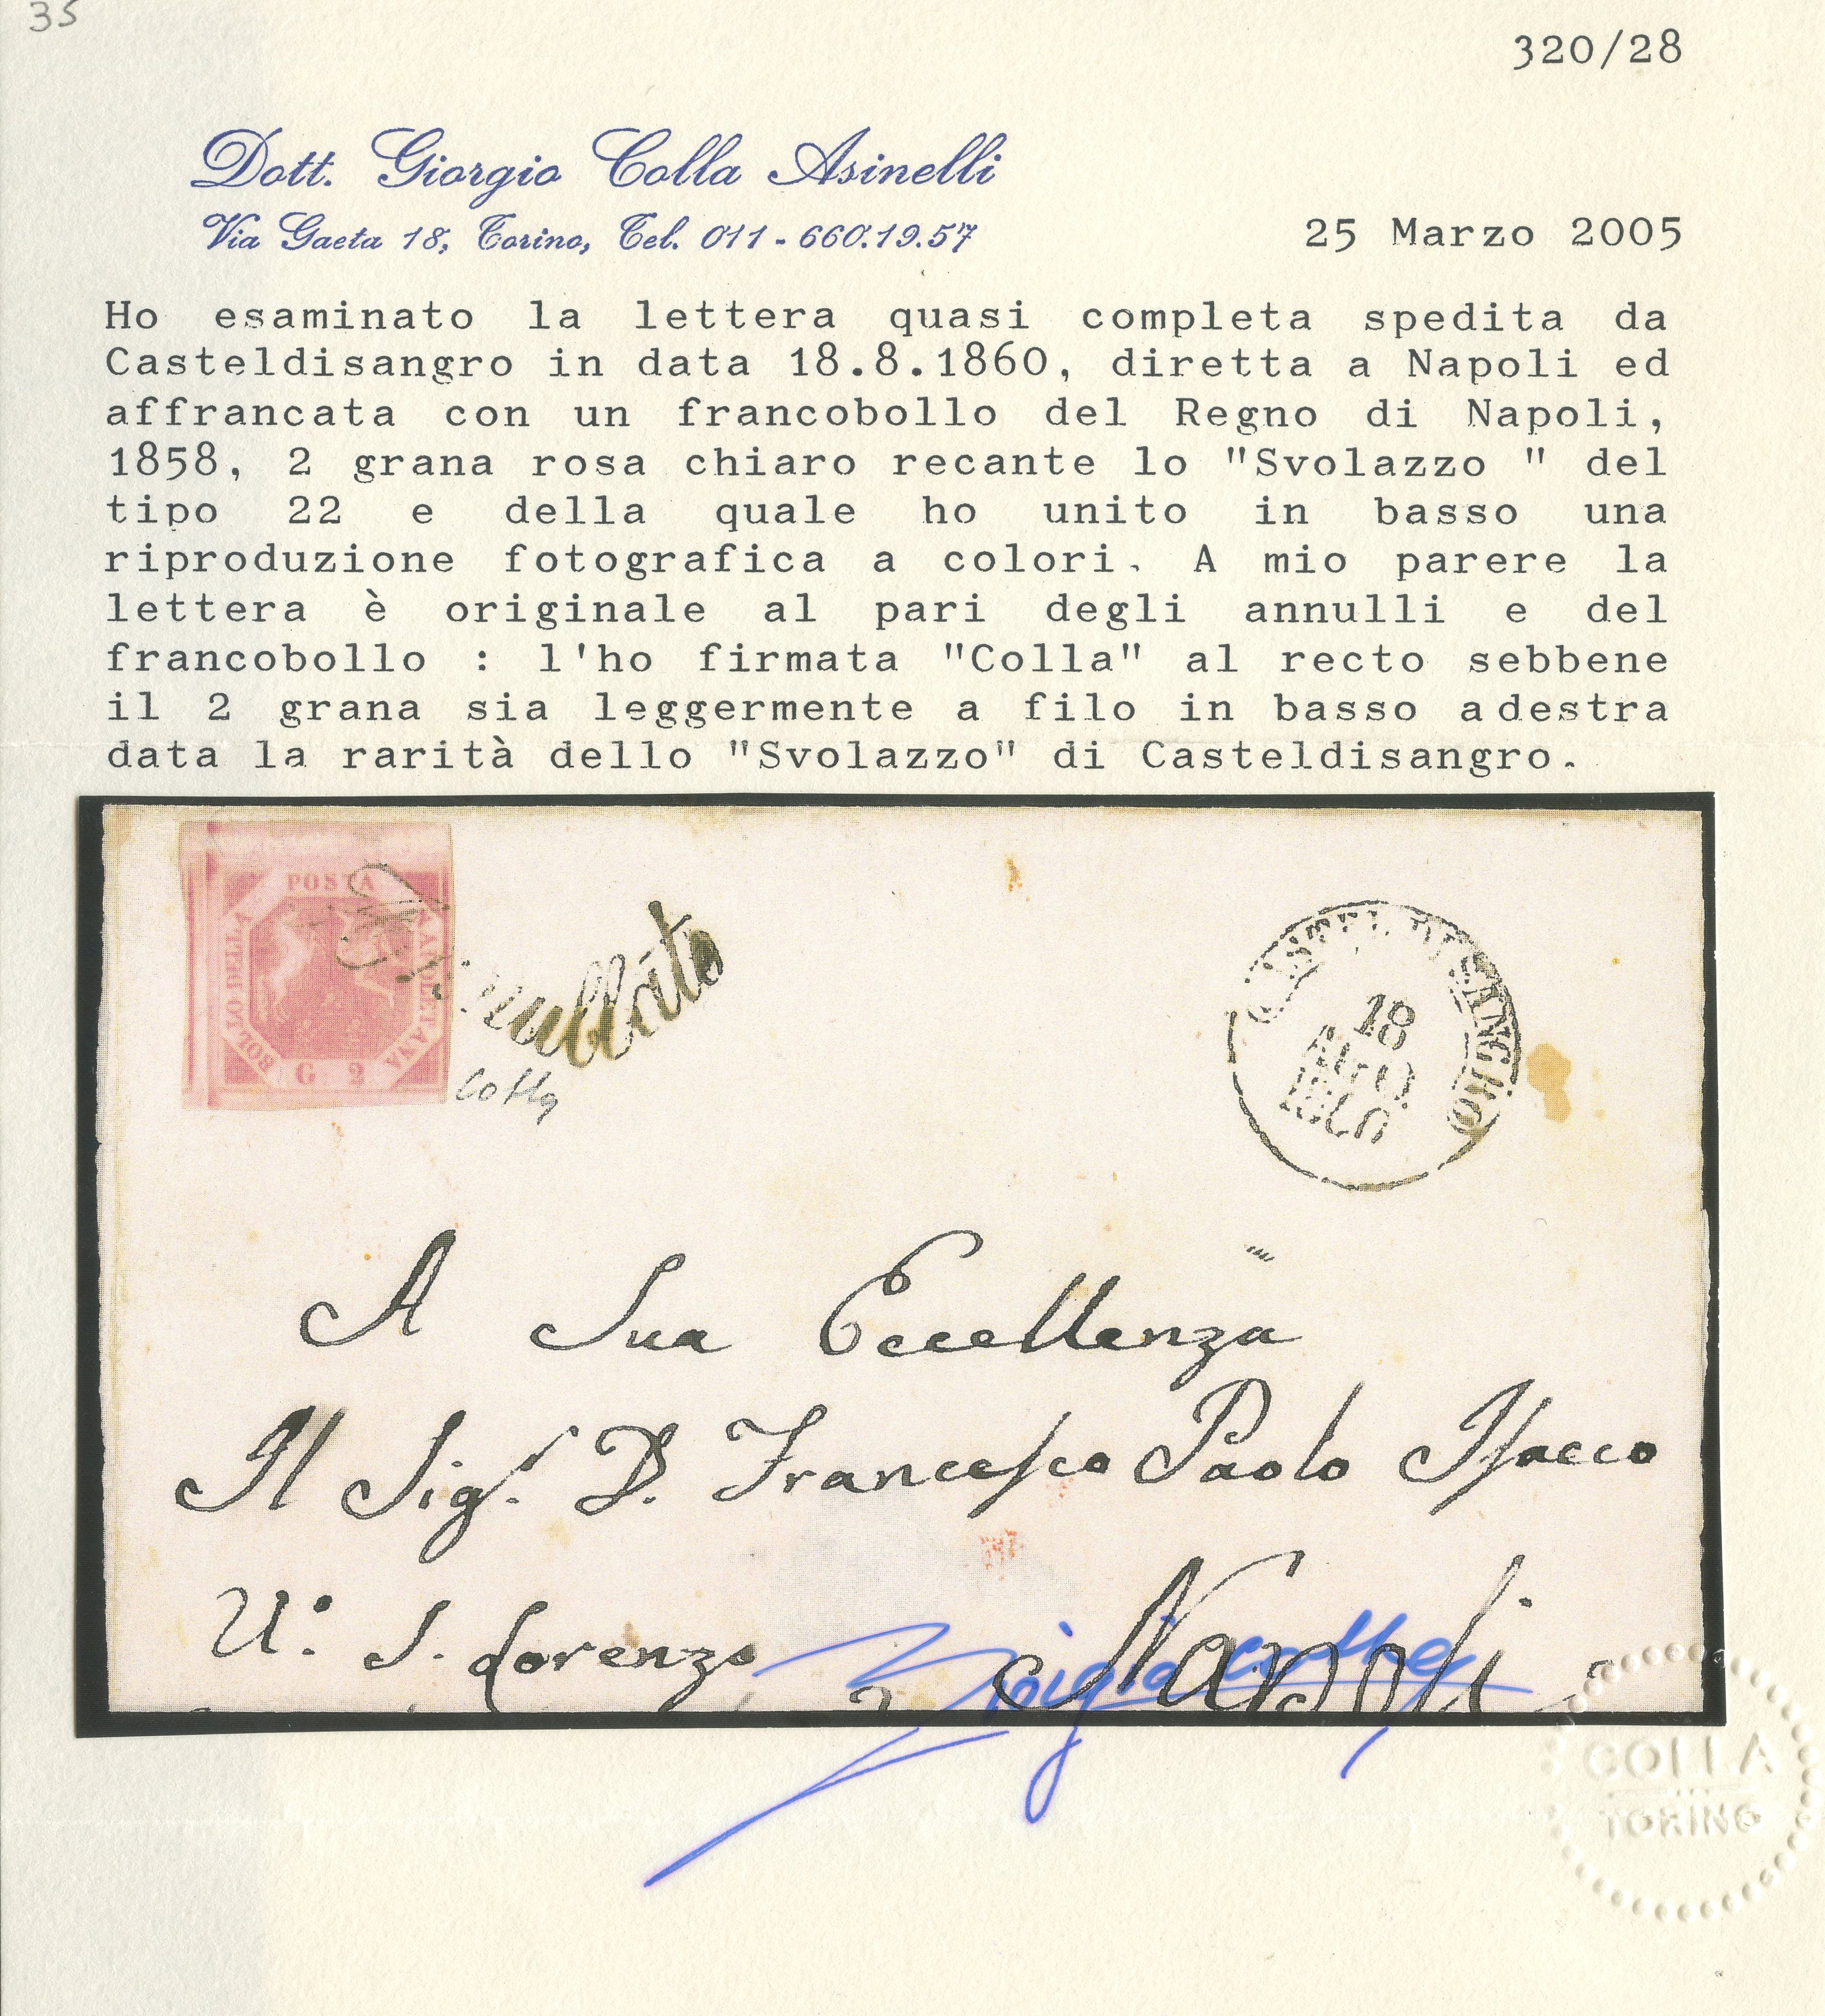 35
320/28
Dott. Giorgio Colla Asinelli
Via Gaeta 18, Torino, Tel. 011 - 660.19.57
25 Marzo 2005
Ho esaminato la lettera quasi completa spedita da
Casteldisangro in data 18.8.1860, diretta a Napoli ed
affrancata con un francobollo del Regno di Napoli,
1858, 2 grana rosa chiaro recante lo "Svolazzo " del
tipo 22 e della quale ho unito in basso una
riproduzione fotografica a colori. A mio parere la
lettera è originale al pari degli annulli e del
francobollo : l'ho firmata "Colla" al recto sebbene
il 2 grana sia leggermente a filo in basso adestra
data la rarità dello "Svolazzo" di Casteldisangro.
POSTA
NAPOLETANA
BOLLO DELLA
G 2
Annullato
Colla
CASTEL DI SANGRO
18
AGO
1860
A Sua Eccellenza
Il Sigr. D. Francesco Paolo Isacco
S. Lorenzo
Napoli
Giorgio Colla
COLLA
TORINO